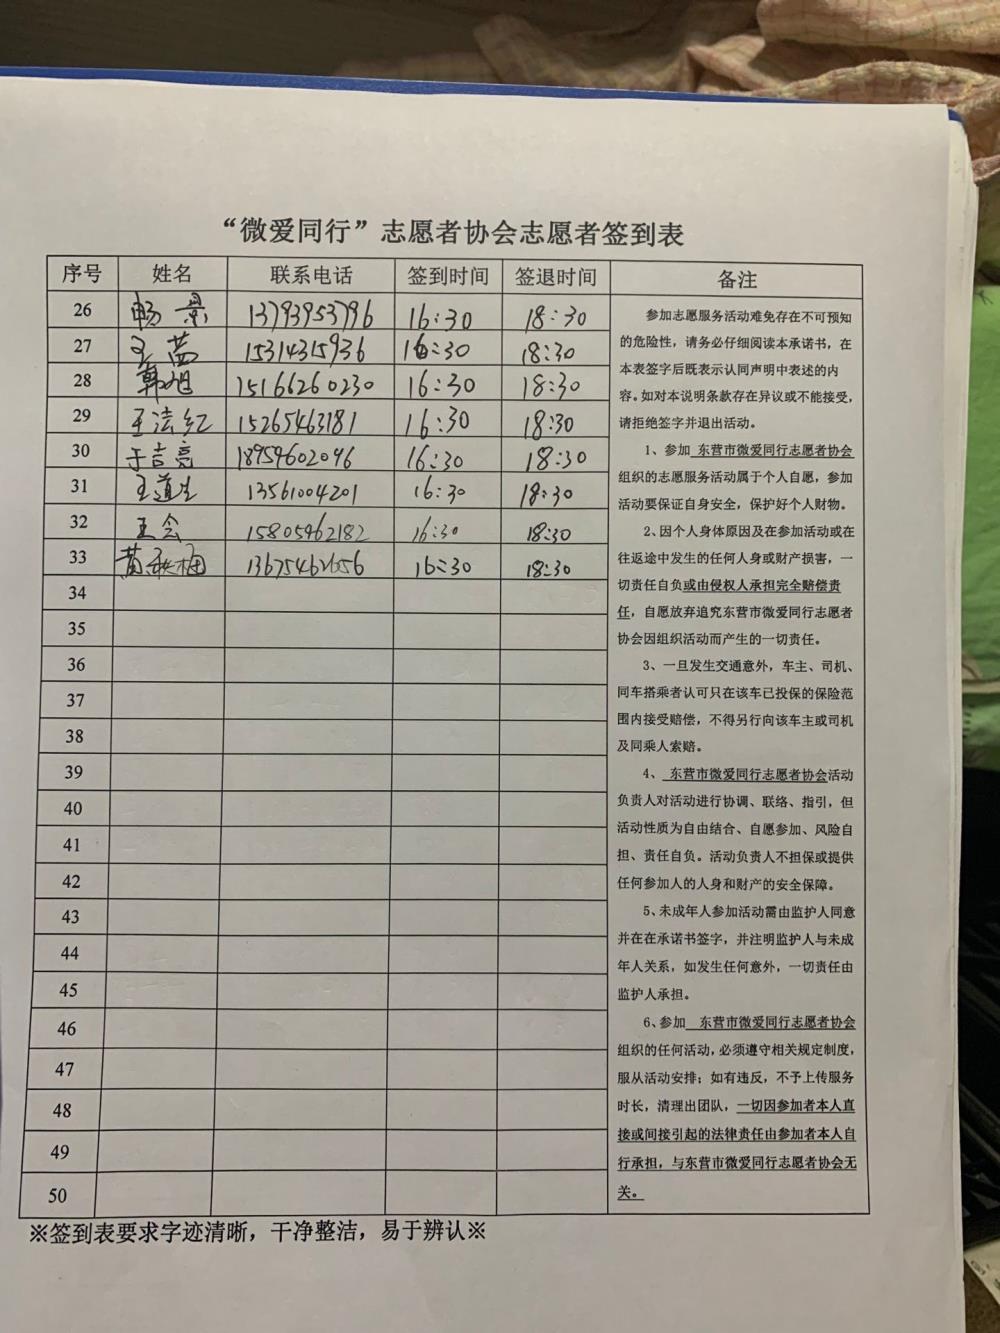 “微爱同行”志愿者协会志愿者签到表
序号 姓名 联系电话 签到时间 签退时间 备注
26 畅景 13793953796 16:30 18:30
27 王蔷 15314315936 16:30 18:30
28 韩旭 15166260230 16:30 18:30
29 王法红 15265463181 16:30 18:30
30 于吉亮 18959602096 16:30 18:30
31 王道生 13561004201 16:30 18:30
32 王会 15805462182 16:30 18:30
33 黄秋梅 13675462656 16:30 18:30
34
35
36
37
38
39
40
41
42
43
44
45
46
47
48
49
50
参加志愿服务活动难免存在不可预知
的危险性，请务必仔细阅读本承诺书，在
本表签字后既表示认同声明中表述的内
容。如对本说明条款存在异议或不能接受，
请拒绝签字并退出活动。
1、参加 东营市微爱同行志愿者协会
组织的志愿服务活动属于个人自愿，参加
活动要保证自身安全，保护好个人财物。
2、因个人身体原因及在参加活动或在
往返途中发生的任何人身或财产损害，一
切责任自负或由侵权人承担完全赔偿责
任，自愿放弃追究东营市微爱同行志愿者
协会因组织活动而产生的一切责任。
3、一旦发生交通意外，车主、司机、
同车搭乘者认可只在该车已投保的保险范
围内接受赔偿，不得另行向该车主或司机
及同乘人索赔。
4、 东营市微爱同行志愿者协会活动
负责人对活动进行协调、联络、指引，但
活动性质为自由结合、自愿参加、风险自
担、责任自负。活动负责人不担保或提供
任何参加人的人身和财产的安全保障。
5、未成年人参加活动需由监护人同意
并在在承诺书签字，并注明监护人与未成
年人关系，如发生任何意外，一切责任由
监护人承担。
6、参加 东营市微爱同行志愿者协会
组织的任何活动，必须遵守相关规定制度，
服从活动安排；如有违反，不予上传服务
时长，清理出团队，一切因参加者本人直
接或间接引起的法律责任由参加者本人自
行承担，与东营市微爱同行志愿者协会无
关。
※签到表要求字迹清晰，干净整洁，易于辨认※